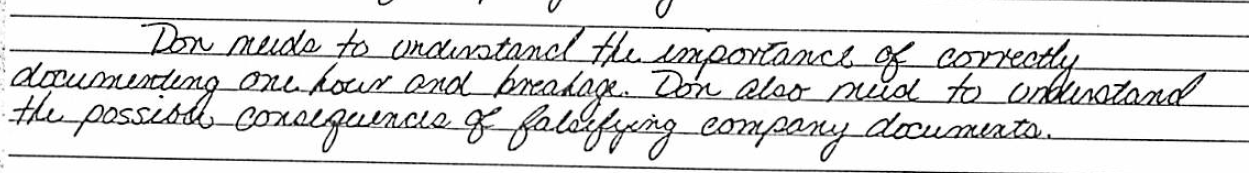 Don needs to understand the importance of correctly
documenting one hour and breakage. Don also need to understand
the possible consequences of falsifying company documents.